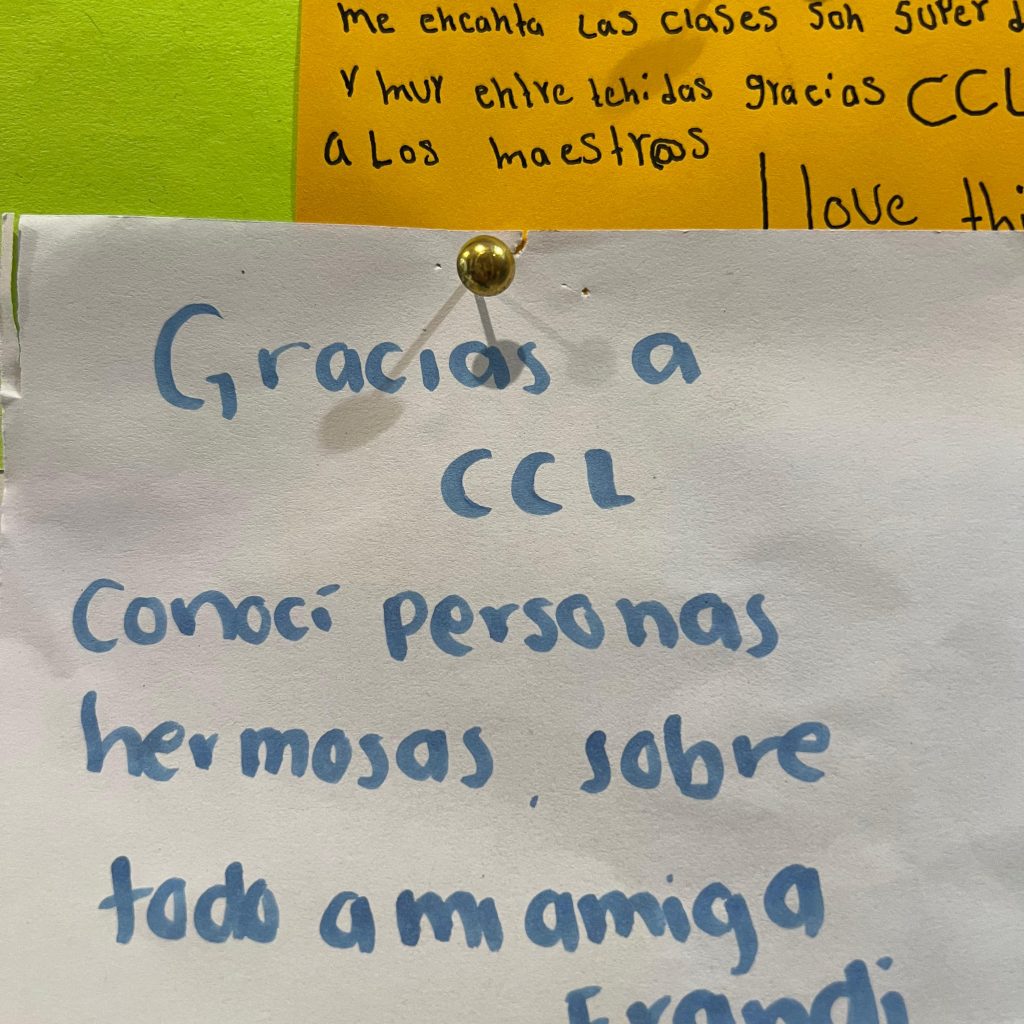 Me encanta Las clases son super
y muy entretenidas gracias CCL
a Los maestr@s
I love
Gracias a
CCL
Conocí personas
hermosas, sobre
todo a mi amiga
Erandi